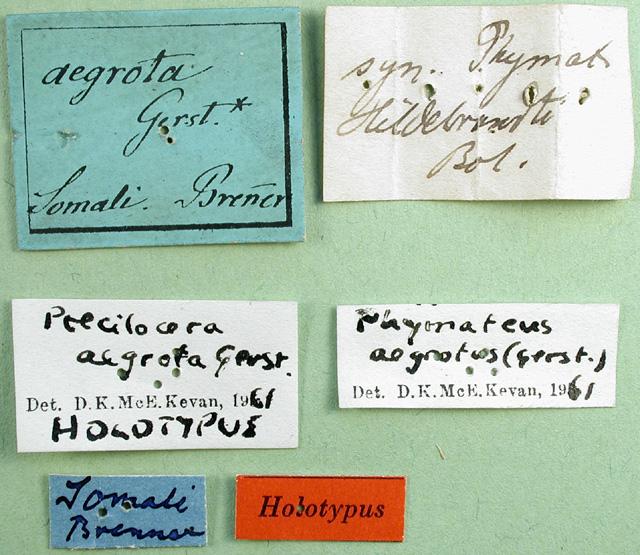 aegrota
Gerst.*
Somali. Breñer
syn. Phymat
Hildebrandti
Bol.
Poecilocera
aegrota Gerst.
Det. D.K.McE.Kevan, 1961
HOLOTYPUS
Phymateus
aegrotus (Gerst.)
Det. D.K.McE.Kevan, 1961
Somali
Brenner
Holotypus